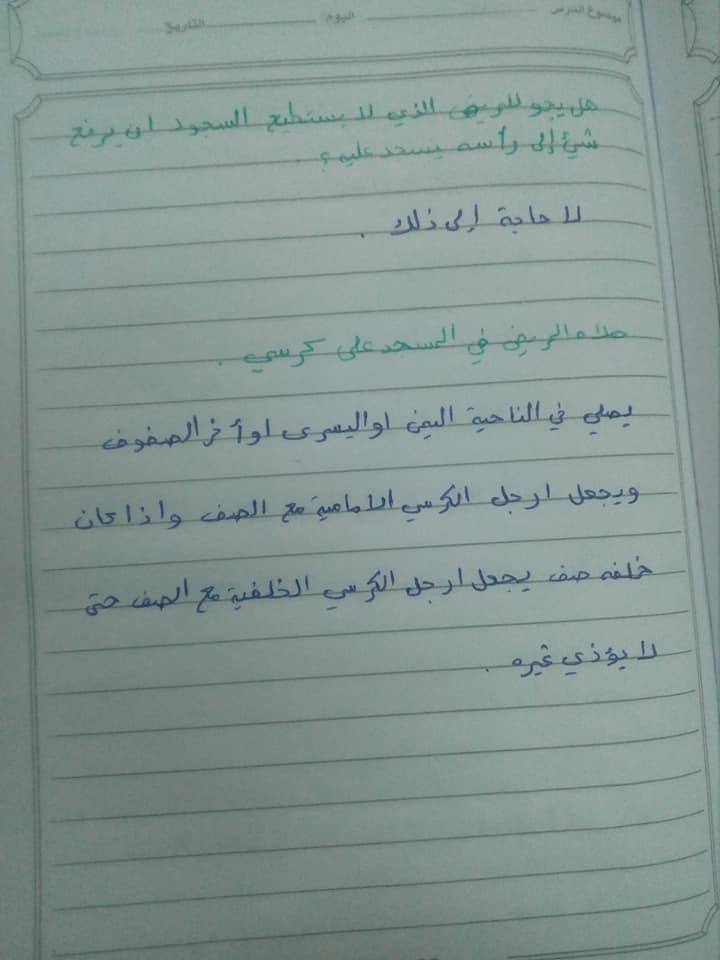 موضوع الدرس اليوم التاريخ
هل يجو للمريض الذي لا يستطيع السجود ان يرفع
شئ إلى رأسه يسجد عليه ؟ .
لا حاجة إلى ذلك .
صلاه المريض في المسجد على كرسي .
يصلي في الناحية اليمنى او اليسرى او أخر الصفوف
ويجعل ارجل الكرسي الامامية مع الصف واذا كان
خلفه صف يجعل ارجل الكرسي الخلفية مع الصف حتى
لا يؤذي غيره .